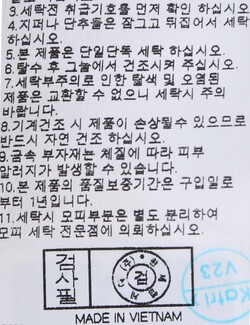 3.세탁전 취급기호를 먼저 확인 하십시오
4.지퍼나 단추물은 잠그고 뒤집어서 세탁
하십시오.
5.본 제품은 단일단독 세탁 하십시오.
6.탈수 후 그늘에서 건조시켜 주십시오.
7.세탁부주의로 인한 탈색 및 오염된
제품은 교환할 수 없으니 세탁시 주의
바랍니다.
8.기계건조 시 제품이 손상될수 있으므로
반드시 자연 건조 하십시오.
9.금속 부자재는 체질에 따라 피부
알러지가 발생할 수 있습니다.
10.본 제품의 품질보증기간은 구입일로
부터 1년입니다.
11.세탁시 모피부분은 별도 분리하여
모피 세탁 전문점에 의뢰하십시오.
검사필
검
Katri
V23
MADE IN VIETNAM